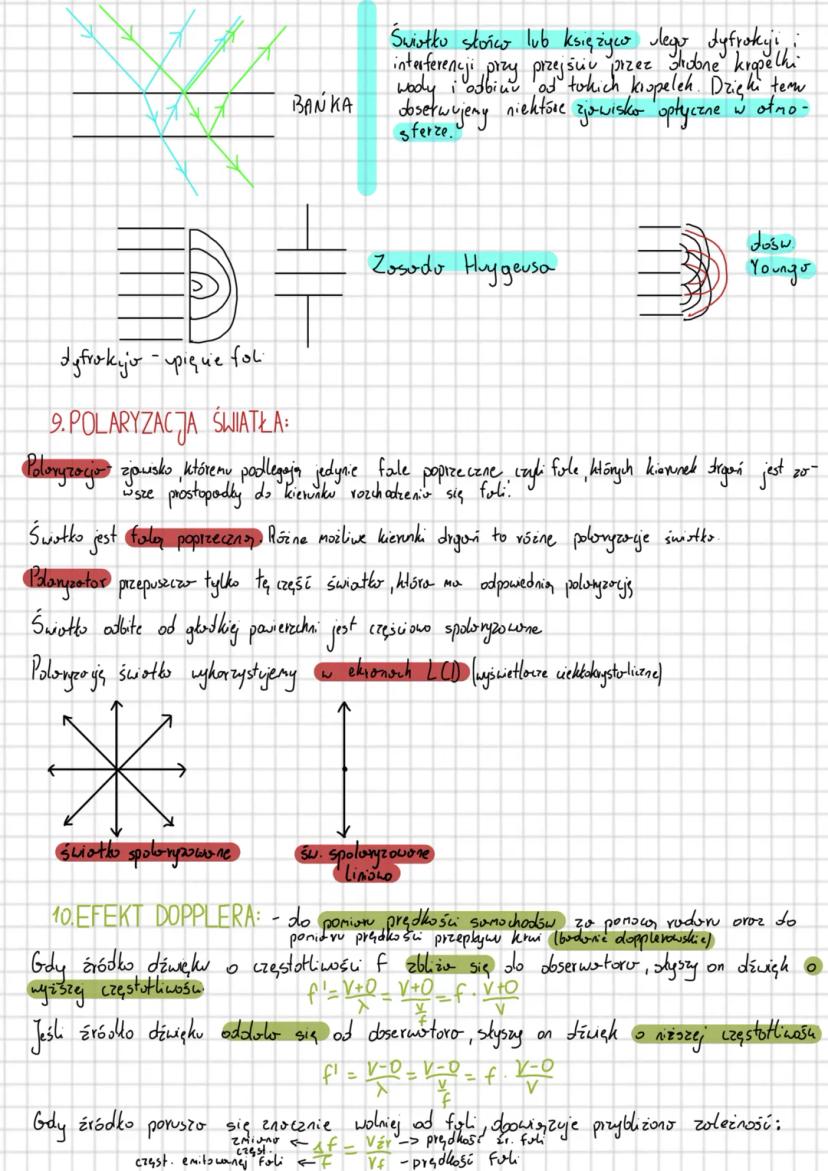 Światło słońca lub księżyca ulega dyfrakcji i
interferencji przy przejściu przez drobne kropelki
wody i odbiciu od takich kropelek. Dzięki temu
obserwujemy niektóre zjawiska optyczne w atmo-
sferze.
BAŃKA
Zasada Huygensa
dośw.
Younga
dyfrakcja - ugięcie fali
9. POLARYZACJA ŚWIATŁA:
Polaryzacja - zjawisko, któremu podlegają jedynie fale poprzeczne, czyli fale, których kierunek drgań jest za-
wsze prostopadły do kierunku rozchodzenia się fali.
Światło jest falą poprzeczną. Różne możliwe kierunki drgań to różne polaryzacje światła.
Polaryzator przepuszcza tylko tę część światła, która ma odpowiednią polaryzację
Światło odbite od gładkiej powierzchni jest częściowo spolaryzowane
Polaryzację światła wykorzystujemy w ekranach LCD (wyświetlacze ciekłokrystaliczne)
światło spolaryzowane
św. spolaryzowane
liniowo
10. EFEKT DOPPLERA: - do pomiaru prędkości samochodów za pomocą radaru oraz do
pomiaru prędkości przepływu krwi (badanie dopplerowskie)
Gdy źródło dźwięku o częstotliwości f zbliża się do obserwatora, słyszy on dźwięk o
wyższej częstotliwości.
f' = V+O/λ = V+O/(V/f) = f · V+O/V
Jeśli źródło dźwięku oddala się od obserwatora, słyszy on dźwięk o niższej częstotliwości
f' = V-O/λ = V-O/(V/f) = f · V-O/V
Gdy źródło porusza się znacznie wolniej od fali, obowiązuje przybliżona zależność:
zmiana częst. ← Δf/f = Vźr/Vf → prędkość źr. fali
częst. emitowanej fali ← - prędkość fali